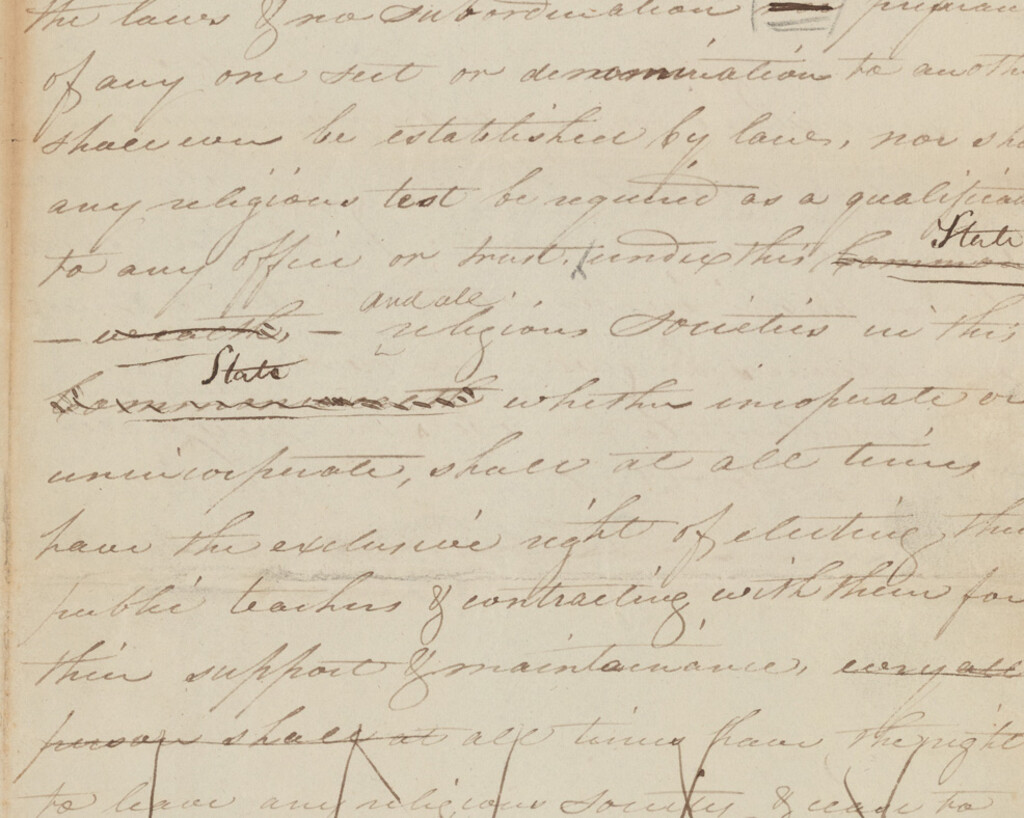 the laws & no subordination
of any one sect or denomination to anoth
shall ever be established by law, nor sha
any religious test be required as a qualifica
State
to any office or trust, under this Common
and all
— wealth, — religious societies in this
State
Commonwealth whether incoperate or
unincorporate, shall at all times
have the exclusive right of electing their
public teachers & contracting with them for
their support & maintainance, every all
person shall at all times have the right
to leave any religious society & cease to